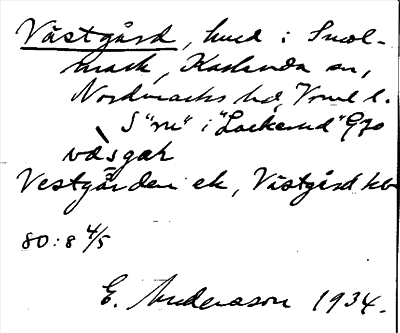 Västgård, hmd i Snol-
mark, Karlanda sn,
Nordmarks hd, Vrml l.
S "m" i "Lockerud" Gjo
vàsgaʀ
Vestgården ek, Västgård kbr
80:8 4/5
E. Andersson 1934.